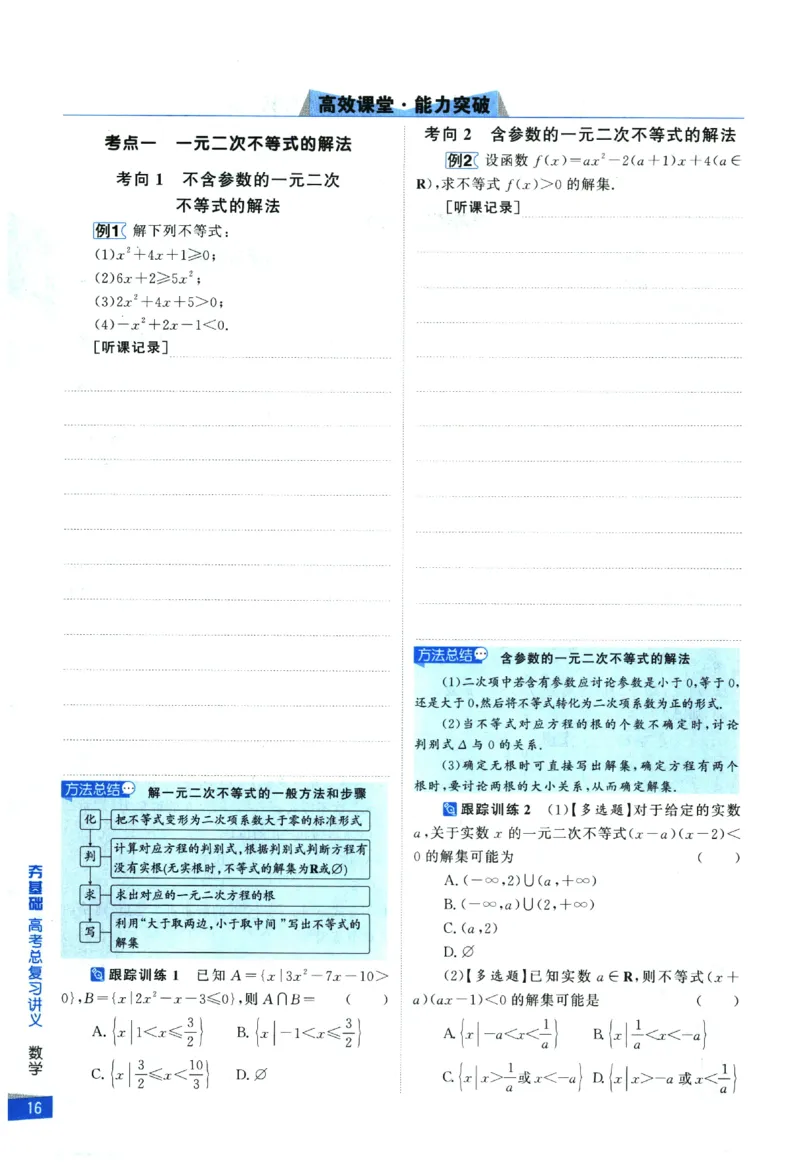 高效课堂·能力突破
考点一 一元二次不等式的解法
考向 1 不含参数的一元二次
不等式的解法
例1 解下列不等式:
(1)x²+4x+1≥0;
(2)6x+2≥5x²;
(3)2x²+4x+5>0;
(4)-x²+2x-1<0.
[听课记录]
方法总结 解一元二次不等式的一般方法和步骤
化 把不等式变形为二次项系数大于零的标准形式
判 计算对应方程的判别式,根据判别式判断方程有
没有实根(无实根时,不等式的解集为R或∅)
求 求出对应的一元二次方程的根
写 利用“大于取两边,小于取中间”写出不等式的
解集
跟踪训练 1 已知 A={x|3x²-7x-10>
0},B={x|2x²-x-3≤0},则 A∩B= ( )
A.{x|1<x≤3/2} B.{x|-1<x≤3/2}
C.{x|3/2≤x<10/3} D.∅
考向 2 含参数的一元二次不等式的解法
例2 设函数 f(x)=ax²-2(a+1)x+4(a∈
R),求不等式 f(x)>0 的解集.
[听课记录]
方法总结 含参数的一元二次不等式的解法
(1)二次项中若含有参数应讨论参数是小于0,等于0,
还是大于0,然后将不等式转化为二次项系数为正的形式.
(2)当不等式对应方程的根的个数不确定时,讨论
判别式 Δ 与 0 的关系.
(3)确定无根时可直接写出解集,确定方程有两个
根时,要讨论两根的大小关系,从而确定解集.
跟踪训练 2 (1)【多选题】对于给定的实数
a,关于实数 x 的一元二次不等式(x-a)(x-2)<
0 的解集可能为 ( )
A.(-∞,2)∪(a,+∞)
B.(-∞,a)∪(2,+∞)
C.(a,2)
D.∅
(2)【多选题】已知实数 a∈R,则不等式(x+
a)(ax-1)<0 的解集可能是 ( )
A.{x|-a<x<1/a} B.{x|1/a<x<-a}
C.{x|x>1/a或x<-a} D.{x|x>-a或x<1/a}
夯基础 高考总复习讲义 数学
16